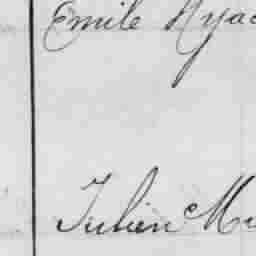 Emile Hyac
Julien Mi